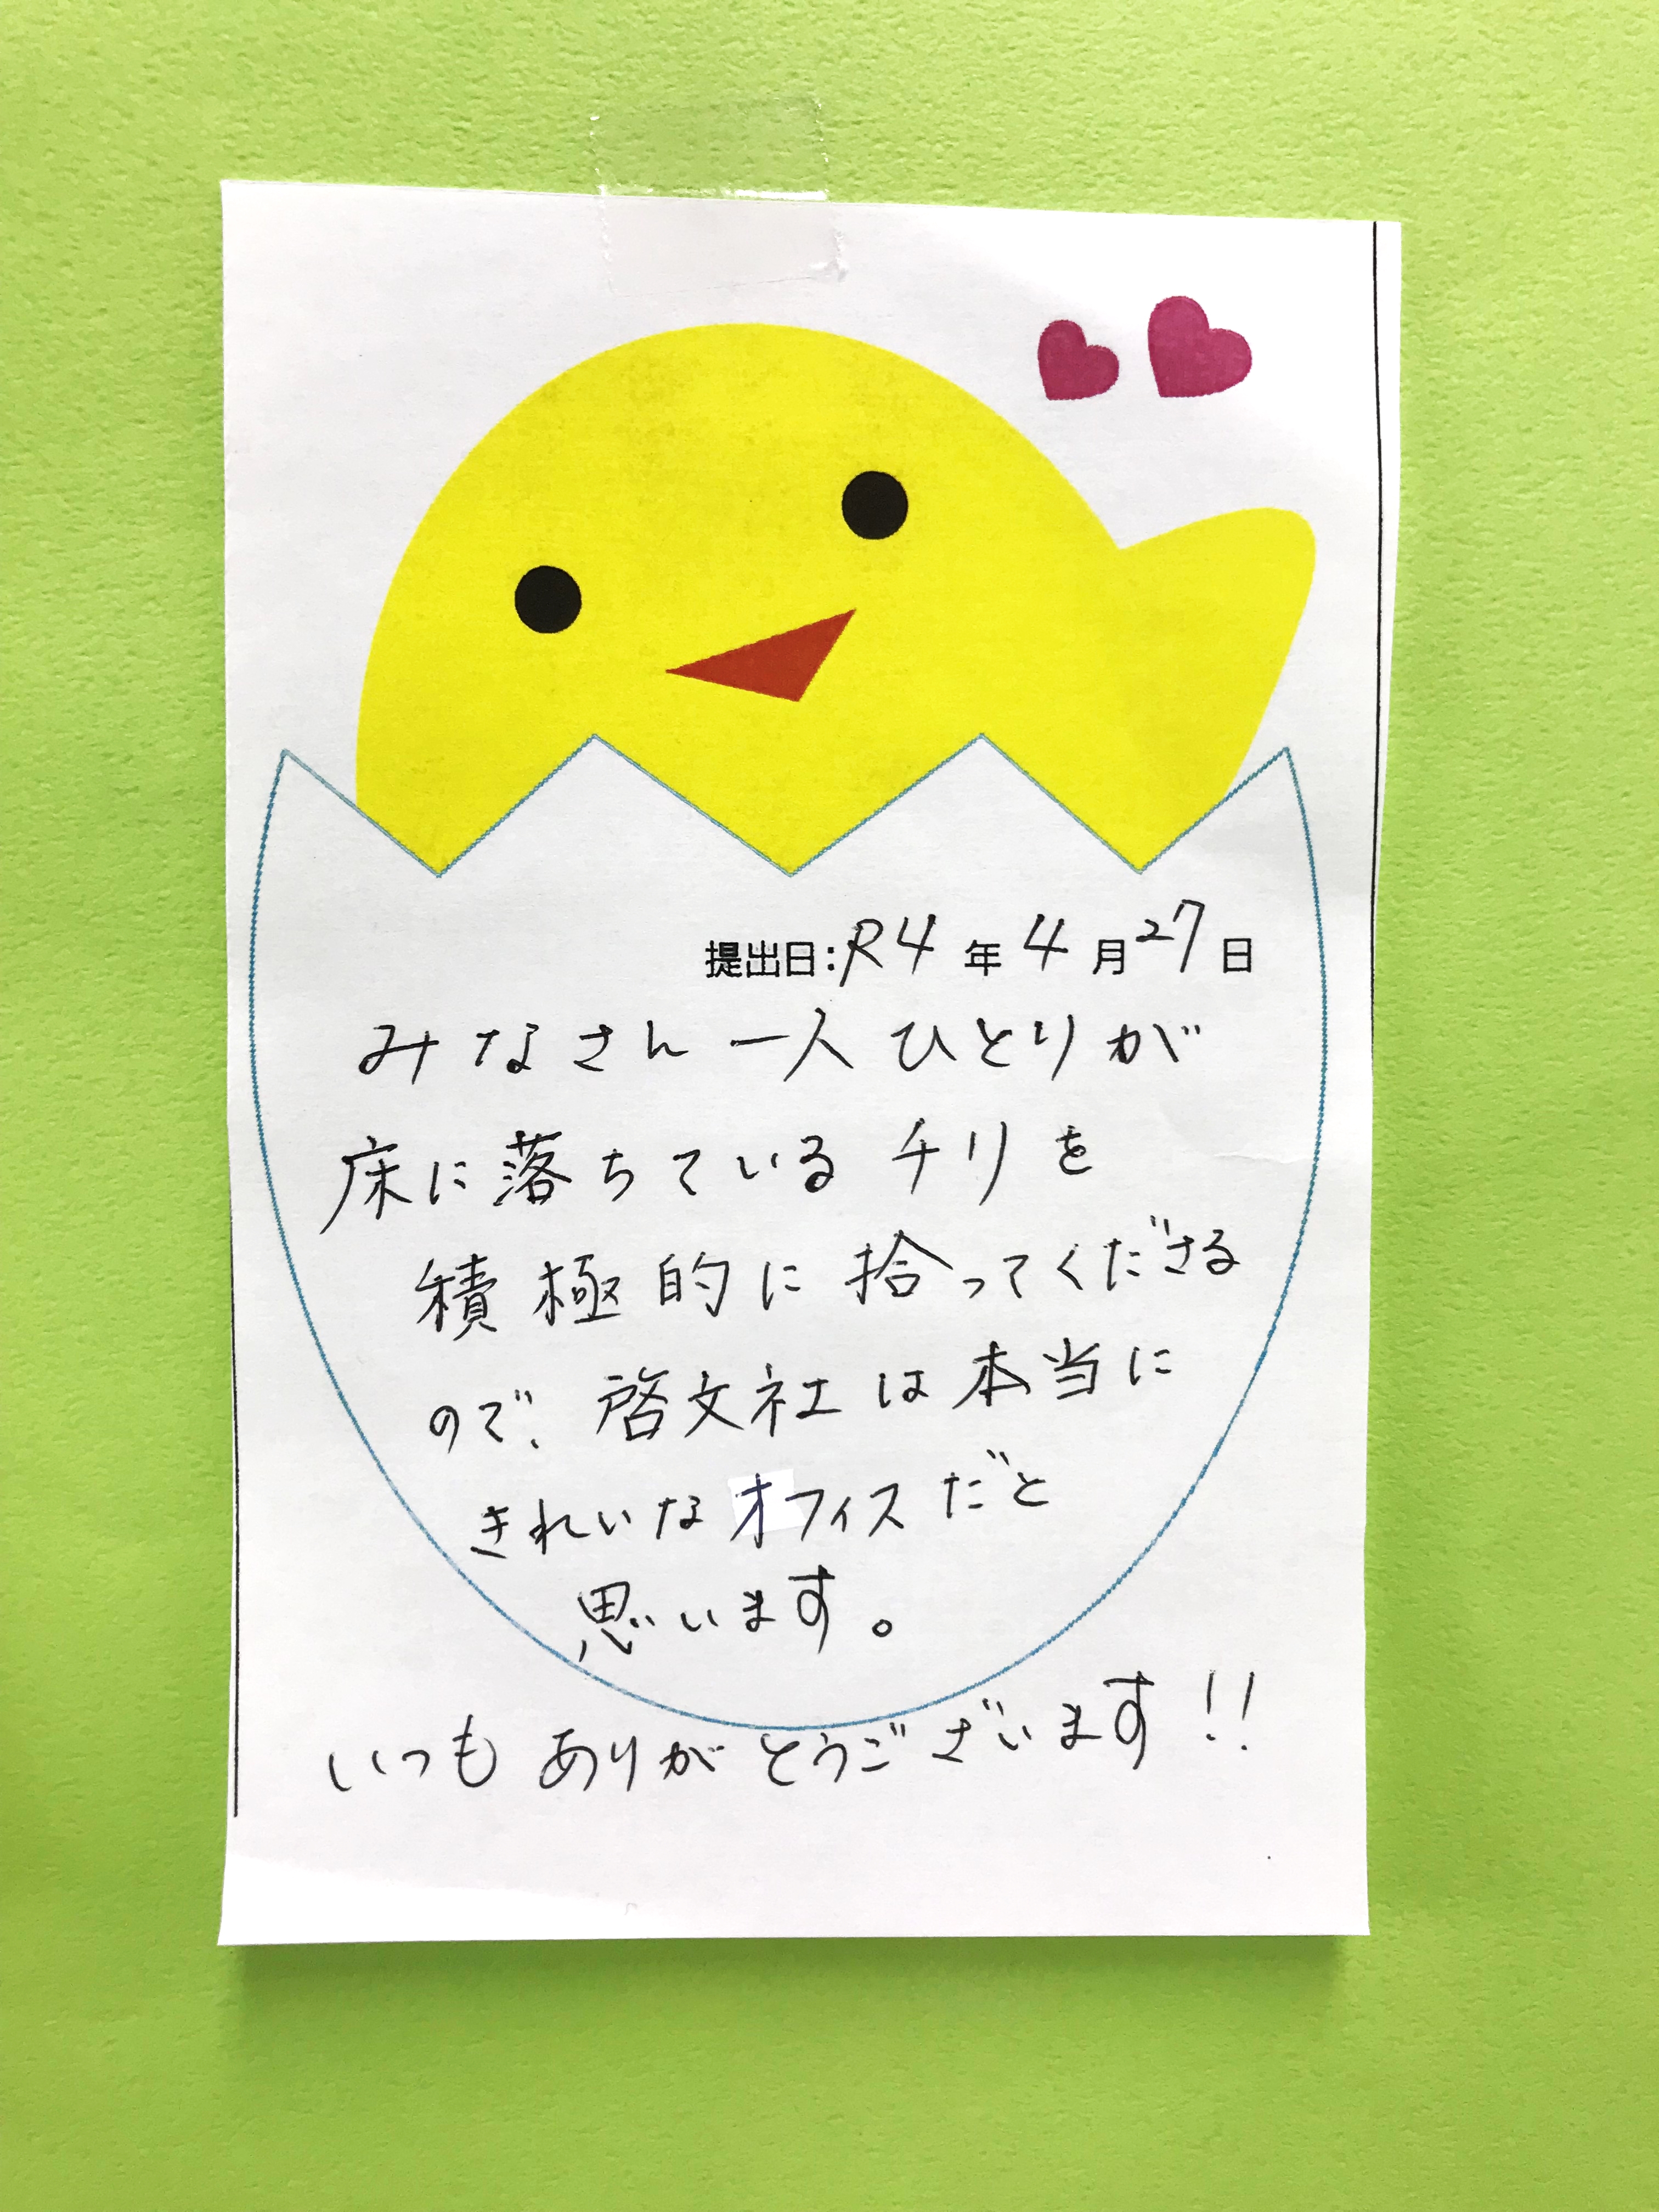 提出日:R4年4月27日
みなさん一人ひとりが
床に落ちているチリを
積極的に拾ってくださる
ので、啓文社は本当に
きれいなオフィスだと
思います。
いつもありがとうございます!!